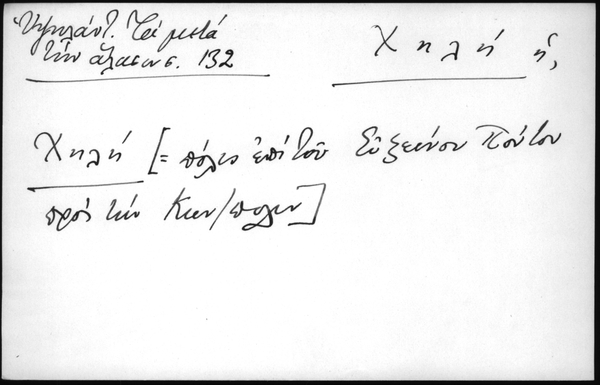 Ὑψηλάντ. Τὰ μετὰ
τὴν ἅλωσιν σ. 132
Χηλή ἡ,
Χηλή [= πόλις ἐπὶ τοῦ Εὐξείνου Πόντου
πρὸς τὴν Κων/πολιν]